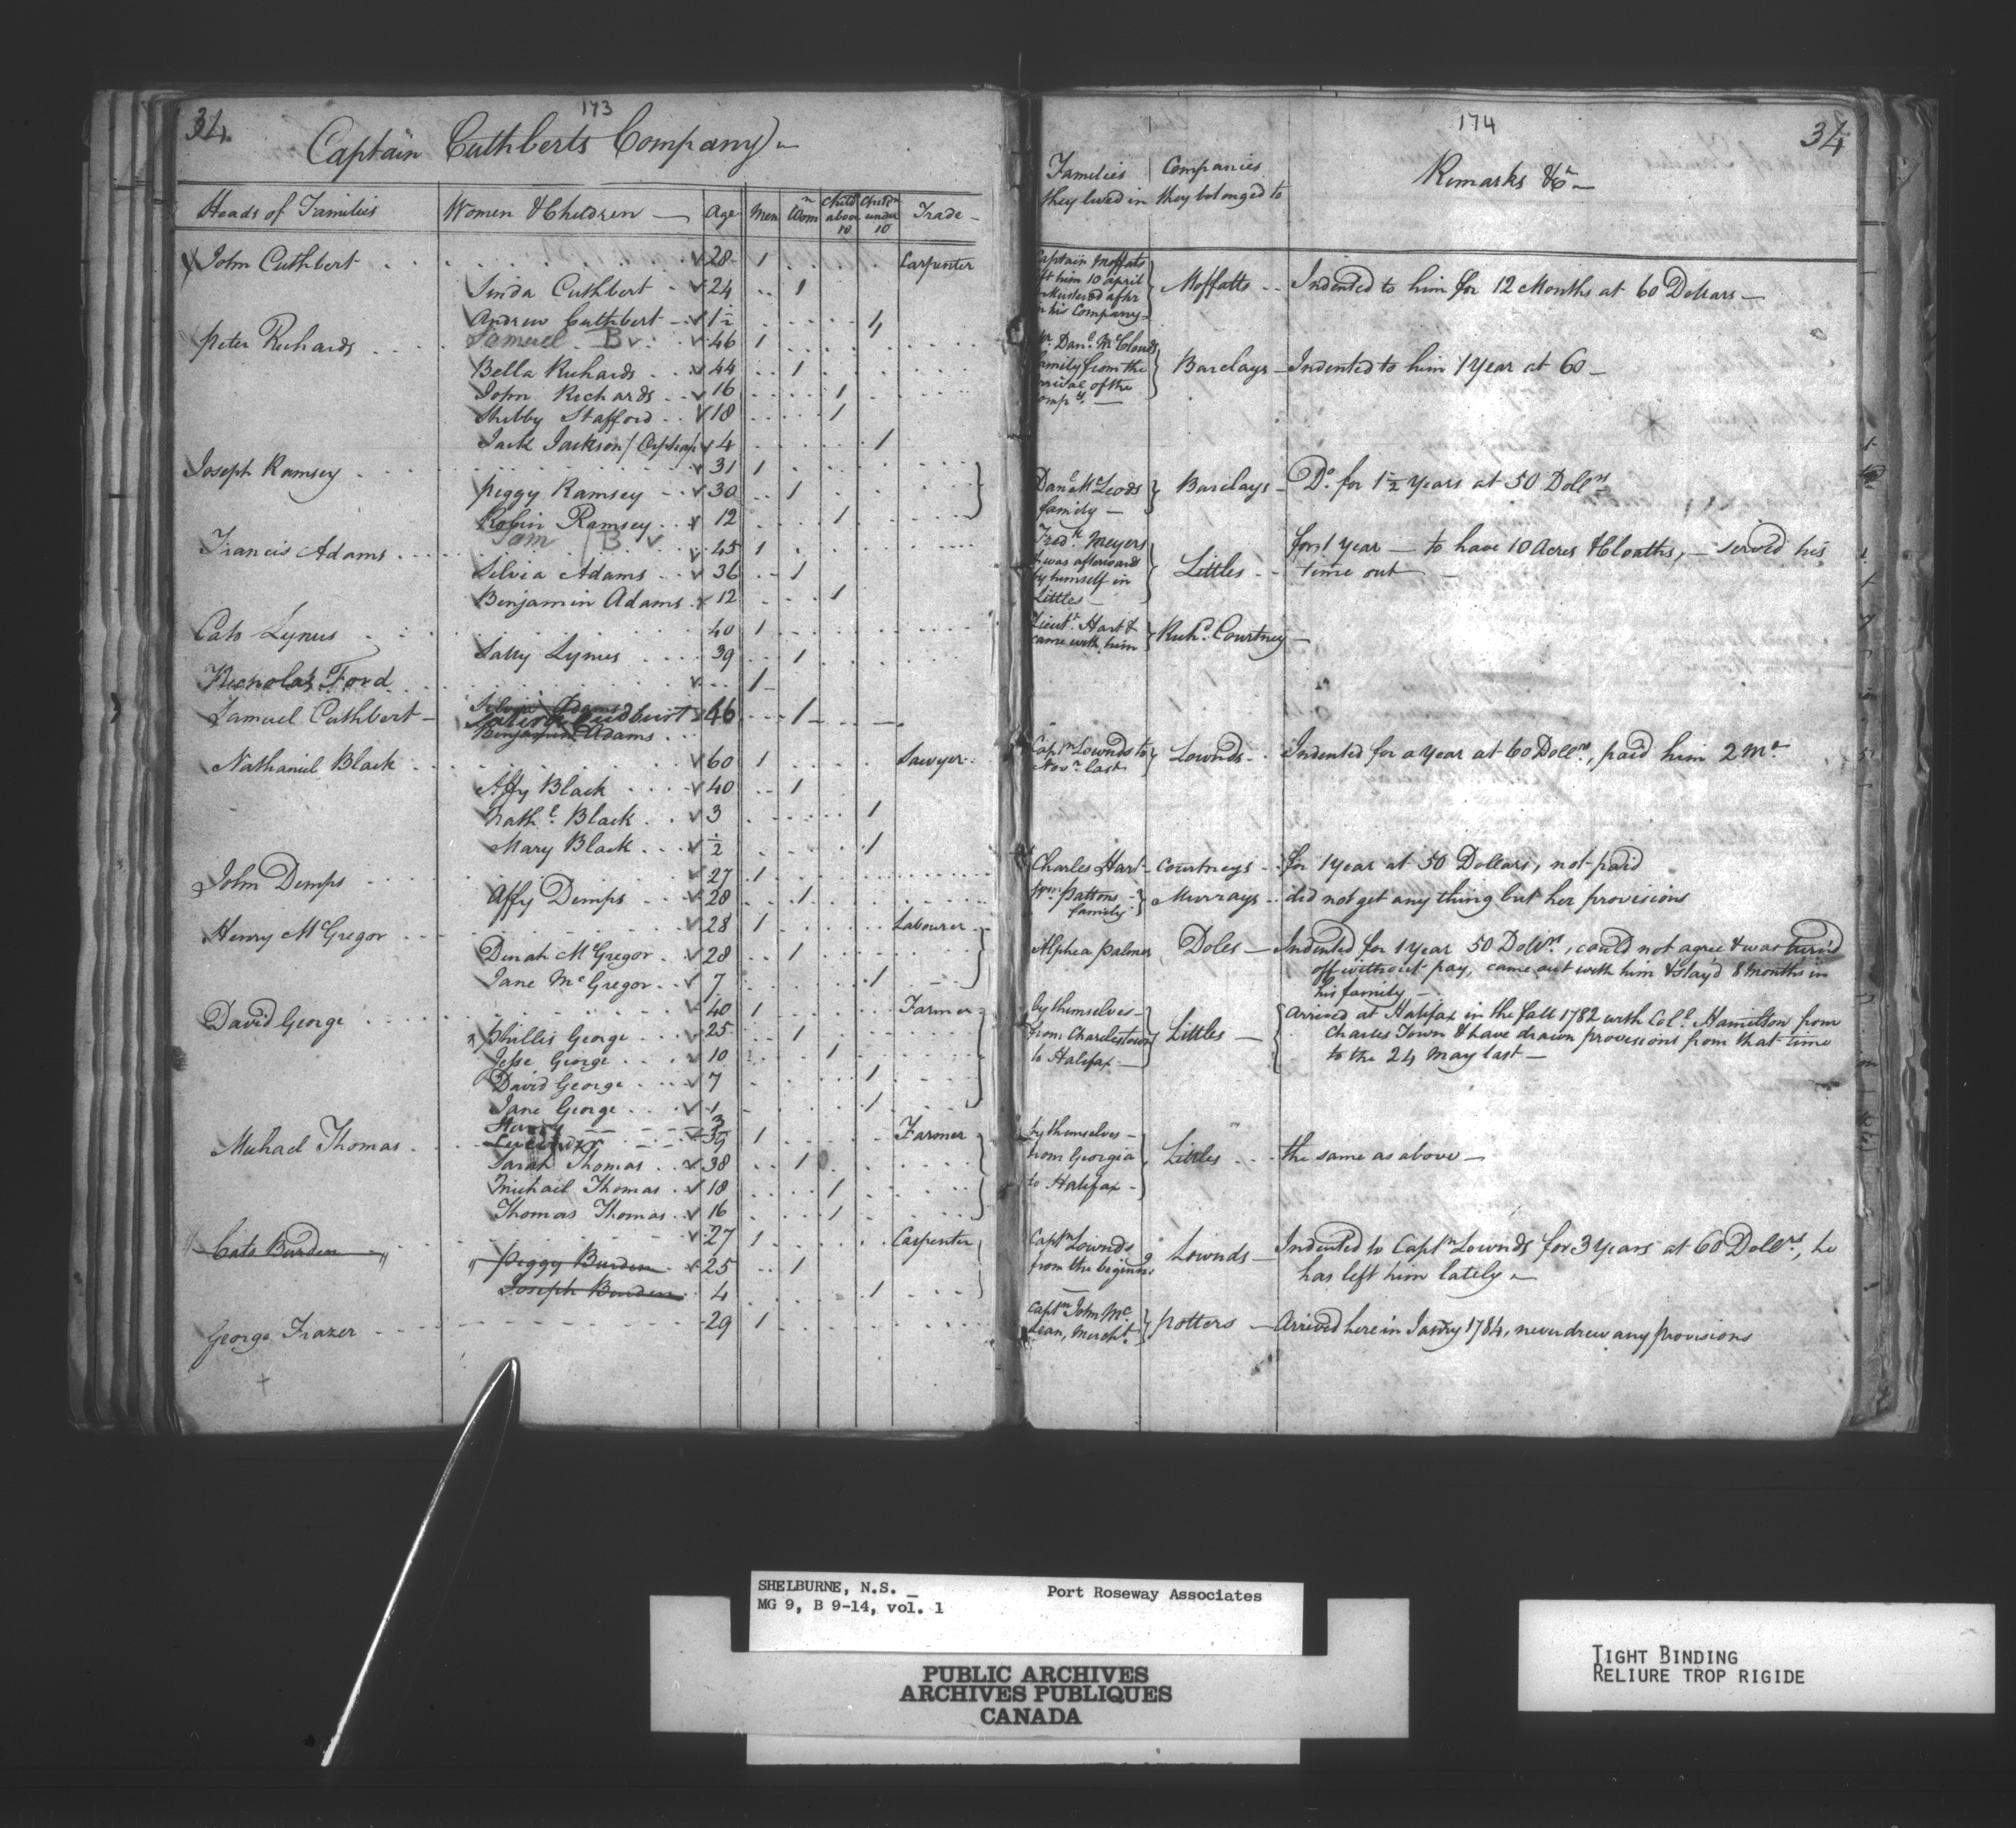 34
173
Captain Cuthberts Company
Heads of Families | Women & Children | Age | Men | Womn | Child above 10 | Childn under 10 | Trade
John Cuthbert . . . 28 1 Carpenter
Sinda Cuthbert . . 24 1
Andrew Cuthbert 1½ 1
Peter Richards . . . Samuel B 46 1
Bella Richards . . 44 1
John Richards . . 16 1
Shibby Stafford . . 18 1
Jack Jackson / Orphan 4 1
Joseph Ramsey . . . 31 1
Peggy Ramsey . . 30 1
Robin Ramsey . . 12 1
Sam / B
Francis Adams . . . 45 1
Silvia Adams . . 36 1
Benjamin Adams . 12 1
Cato Lynus . . . 40 1
Sally Lynus . . . 39 1
Nicholas Ford . . . 1
Silvia Adams
Samuel Cuthbert 46 1
Benjamin Adams . . .
Nathaniel Black . . . 60 1 Sawyer
Affy Black . . . 40 1
Nathl Black . . 3 1
Mary Black . . . ½ 1
John Demps . . . 27 1
Affy Demps . . . 28 1
Henry McGregor . . . 28 1 Labourer
Dinah McGregor . . 28 1
Jane McGregor . . 7 1
David George . . . 40 1 Farmer
Phillis George . . . 25 1
Jesse George . . . 10 1
David George . . . 7 1
Jane George . . . 1 1
3
Michael Thomas . . . 39 1 Farmer
Sarah Thomas . . 38 1
Michail Thomas . 18 1
Thomas Thomas . . 16 1
Cato Burden . . . 27 1 Carpenter
Peggy Burden . 25 1
Joseph Burden . 4 1
George Frazer . . . 29 1
174
34
Families they lived in | Companies they belonged to | Remarks &ca
Captain Moffats
him 10 april
Mustered after
his Company
Moffatts . . Indented to him for 12 Months at 60 Dollars
Danl McClouds
family from the
arrival of the
Compy
Barclays Indented to him 1 Year at 60
Danl McLeods
family
Barclays Do for 1½ Years at 50 Dollrs
Fredk Meyers
& was afterwards
by himself in
Littles
Littles . . for 1 year to have 10 Acres & Cloaths, served his
time out
Lieutt Hart &
came with him
Richd Courtney
Captn Lownds to
Novr last
Lownds . . Indented for a Year at 60 Dollrs, paid him 2 Ms
Charles Hart Courtneys . . for 1 Year at 50 Dollars, not paid
Wm Pattons
family
Murrays . . did not get any thing but her provisions
Alphea Palmer Doles Indented for 1 Year 50 Dollrs, could not agree & was turn'd
off without pay, came out with him & stay'd 8 months in
his family
by themselves
from Charlestown
to Halifax
Littles Arrived at Halifax in the fall 1782 with Coll Hamilton from
Charles Town & have drawn provisions from that time
to the 24 May last
by themselves
from Georgia
to Halifax
Littles . . . the same as above
Captn Lownds
from the beging
Lownds Indented to Captn Lownds for 3 Years at 60 Dollrs, he
has left him lately
Captn John Mc
Lean, Mercht
Potters Arrived here in Janry 1784, never drew any provisions
SHELBURNE, N.S. _
MG 9, B 9-14, vol. 1
Port Roseway Associates
PUBLIC ARCHIVES
ARCHIVES PUBLIQUES
CANADA
TIGHT BINDING
RELIURE TROP RIGIDE